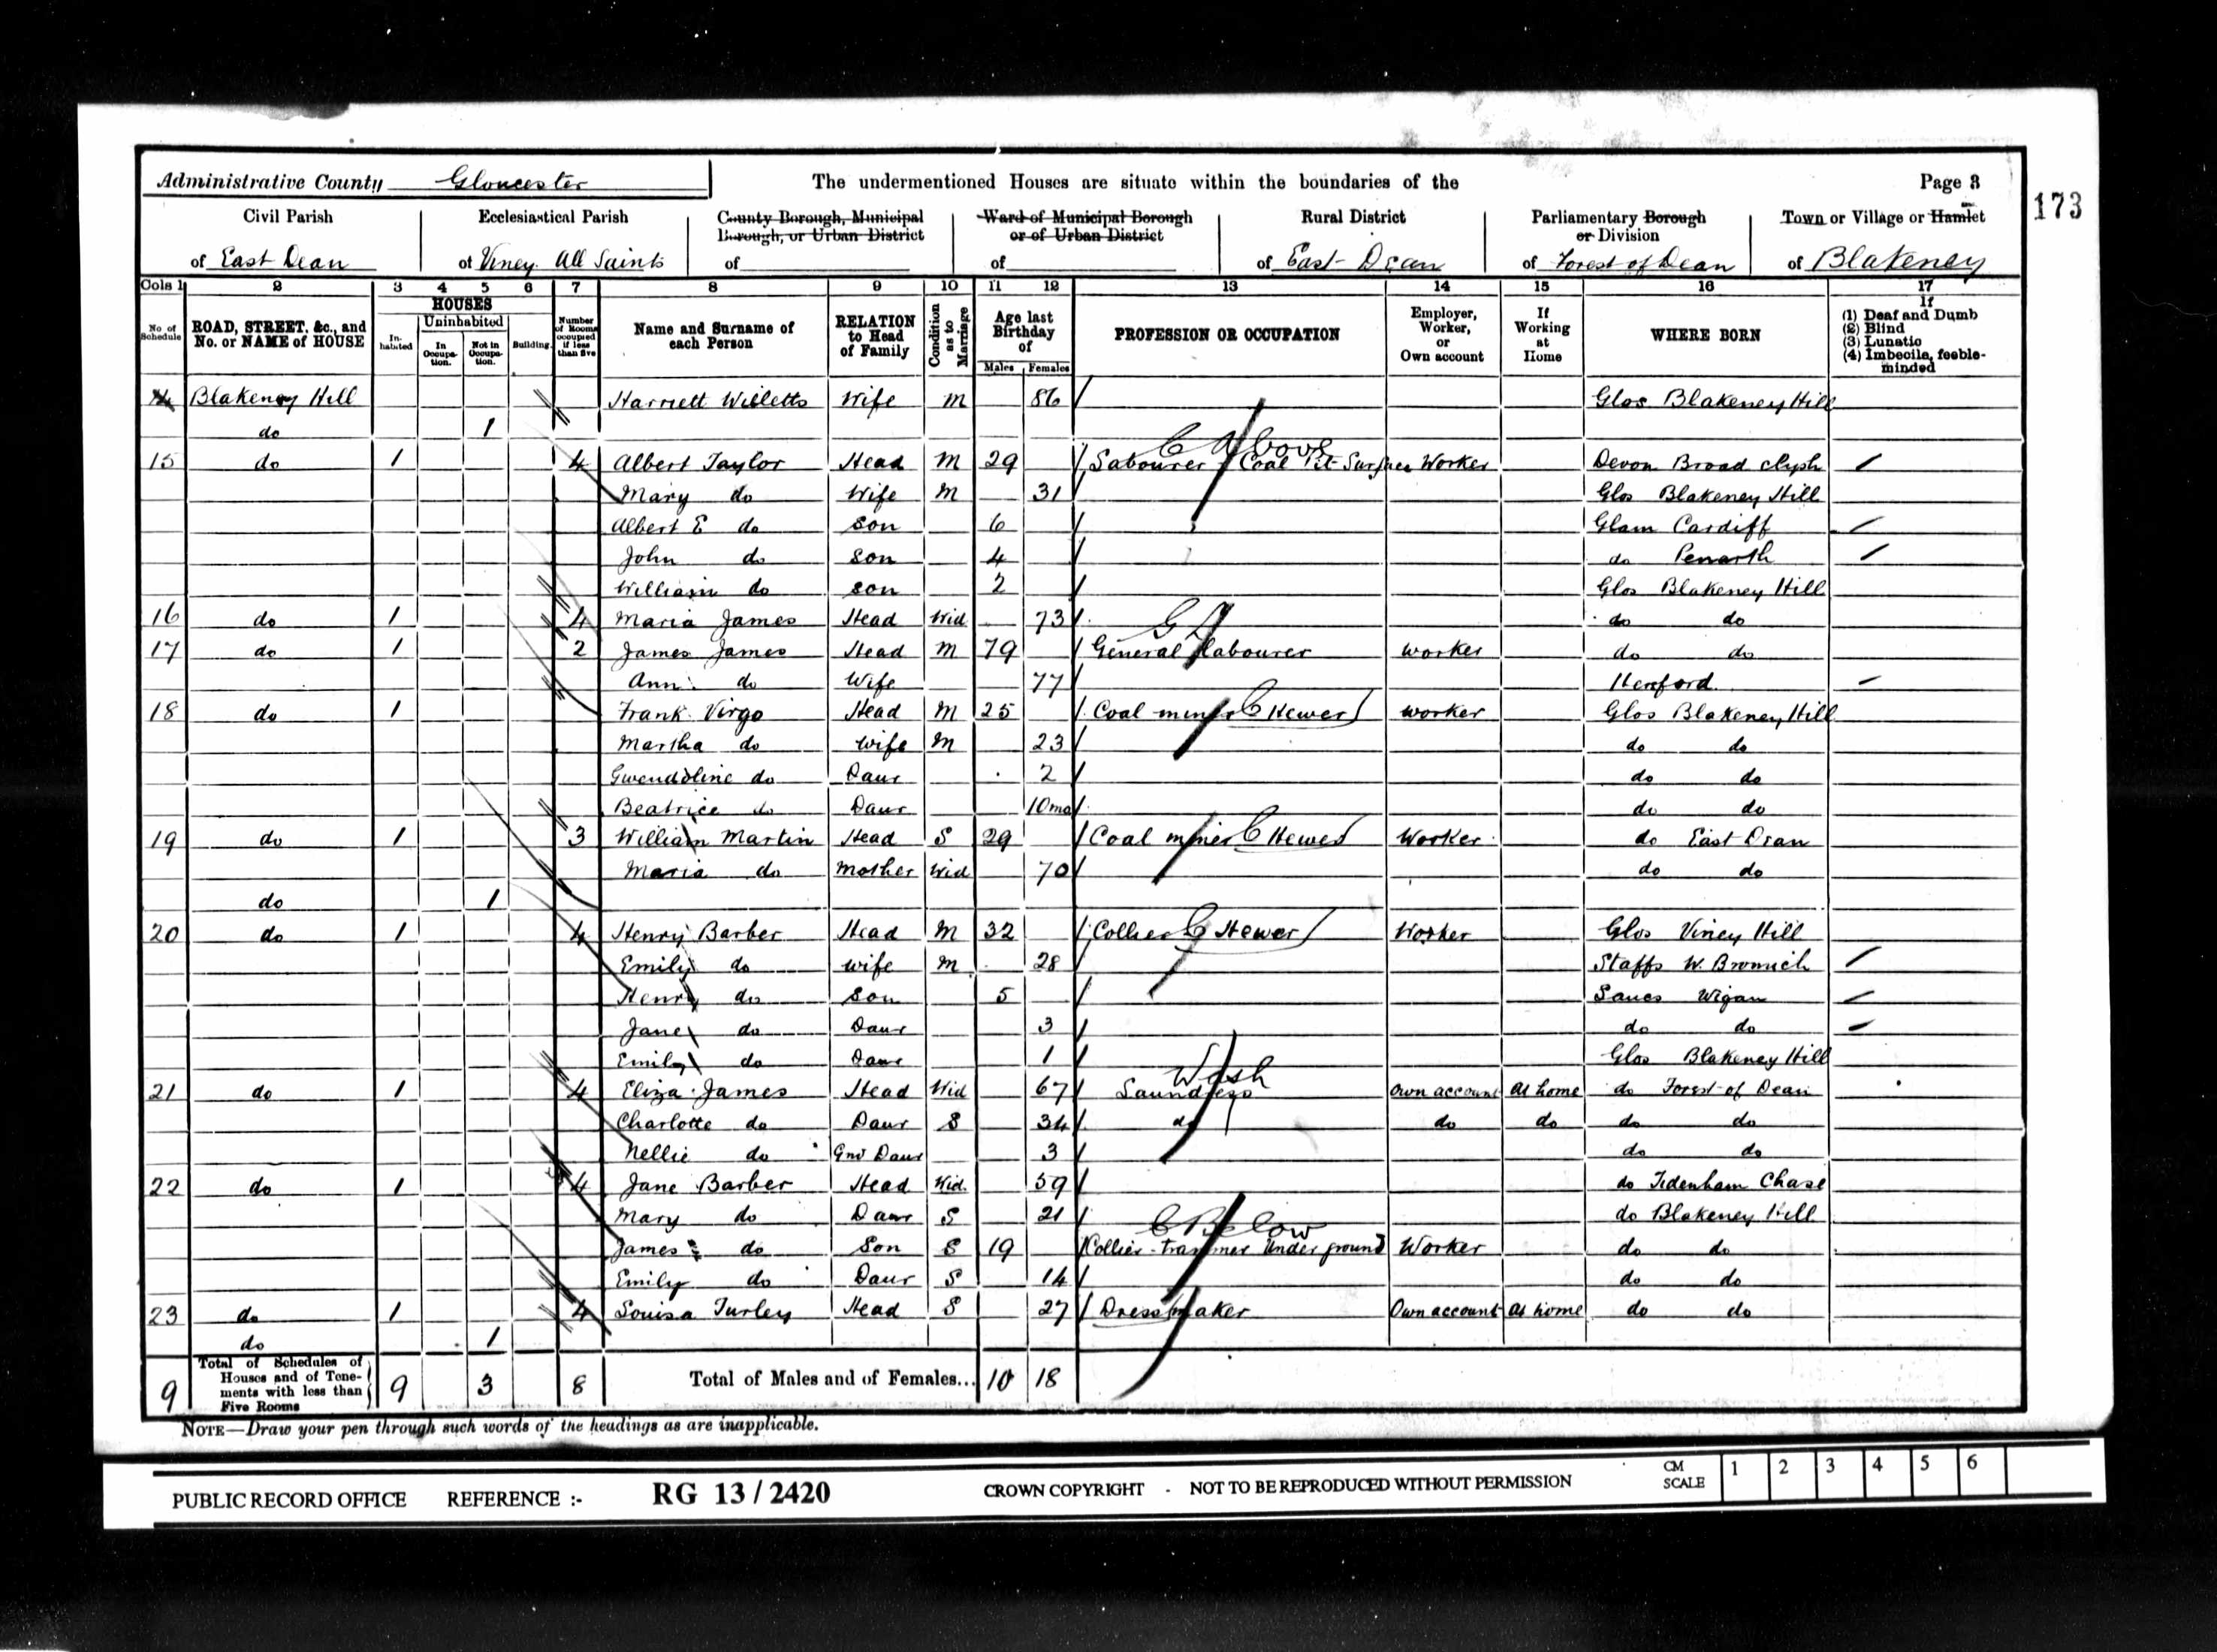 Administrative County Gloucester The undermentioned Houses are situate within the boundaries of the Page 3
173
Civil Parish Ecclesiastical Parish County Borough, Municipal Borough, or Urban District Ward of Municipal Borough or of Urban District Rural District Parliamentary Borough or Division Town or Village or Hamlet
of East Dean of Viney All Saints of of of East Dean of Forest of Dean of Blakeney
Cols 1 2 3 4 5 6 7 8 9 10 11 12 13 14 15 16 17
No. of Schedule ROAD, STREET, &c., and No. or NAME of HOUSE HOUSES In-habited Uninhabited In Occupa-tion. Not in Occupa-tion. Building. Number of Rooms occupied if less than five Name and Surname of each Person RELATION to Head of Family Condition as to Marriage Age last Birthday of Males Females PROFESSION OR OCCUPATION Employer, Worker, or Own account If Working at Home WHERE BORN If (1) Deaf and Dumb (2) Blind (3) Lunatic (4) Imbecile, feeble-minded
Blakeney Hill Harriett Willetts Wife M 86 Glos Blakeney Hill
do 1
C Above
15 do 1 4 Albert Taylor Head M 29 Labourer Coal Pit Surface Worker Devon Broad Clysh
Mary do Wife M 31 Glos Blakeney Hill
Albert E do Son 6 Glam Cardiff
John do Son 4 do Penarth
William do Son 2 Glos Blakeney Hill
16 do 1 4 Maria James Head Wid 73 do do
G L
17 do 1 2 James James Head M 79 General labourer Worker do do
Ann do Wife 77 Hereford
18 do 1 Frank Virgo Head M 25 Coal miner C Hewer Worker Glos Blakeney Hill
Martha do Wife M 23 do do
Gwendoline do Daur 2 do do
Beatrice do Daur 10mo do do
19 do 1 3 William Martin Head S 29 Coal miner C Hewer Worker do East Dean
Maria do Mother Wid 70 do do
do 1
20 do 1 4 Henry Barber Head M 32 Collier C Hewer Worker Glos Viney Hill
Emily do Wife M 28 Staffs W. Bromich
Henry do Son 5 Lancs Wigan
Jane do Daur 3 do do
Emily do Daur 1 Glos Blakeney Hill
Wash
21 do 1 4 Eliza James Head Wid 67 Laundress Own account At home do Forest of Dean
Charlotte do Daur S 34 do do do do do
Nellie do Gnd Daur 3 do do
22 do 1 4 Jane Barber Head Wid. 59 do Tidenham Chase
Mary do Daur S 21 do Blakeney Hill
C Below
James do Son S 19 Collier - trammer Under ground Worker do do
Emily do Daur S 14 do do
23 do 1 4 Louisa Turley Head S 27 Dressmaker Own account At home do do
do 1
9 Total of Schedules of Houses and of Tene-ments with less than Five Rooms 9 3 8 Total of Males and of Females... 10 18
NOTE—Draw your pen through such words of the headings as are inapplicable.
PUBLIC RECORD OFFICE REFERENCE :- RG 13 / 2420 CROWN COPYRIGHT - NOT TO BE REPRODUCED WITHOUT PERMISSION CM SCALE 1 2 3 4 5 6